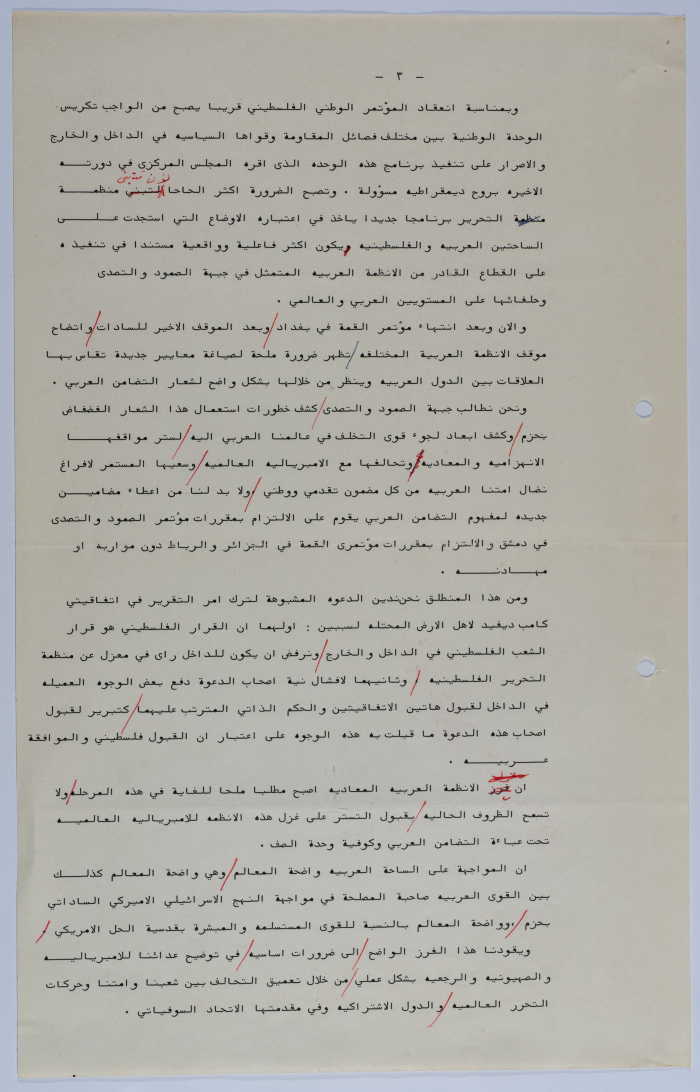 - ٣ -
وبمناسبة انعقاد المؤتمر الوطني الفلسطيني قريبا يصبح من الواجب تكريس
الوحدة الوطنية بين مختلف فصائل المقاومة وقواها السياسيه في الداخل والخارج
والاصرار على تنفيذ برنامج هذه الوحده الذى اقره المجلس المركزي في دورتــه
الاخيره بروح ديمقراطيه مسؤولة . وتصبح الضرورة اكثر الحاحا لتبني منظمــة
منظمة التحرير برنامجا جديدا ياخذ في اعتباره الاوضاع التي استجدت علــى
الساحتين العربيه والفلسطينيه ويكون اكثر فاعلية وواقعية مستندا في تنفيذ ه
على القطاع القادر من الانظمة العربيه المتمثل في جبهة الصمود والتصدى
وحلفائها على المستويين العربي والعالمي .
والان وبعد انتهاء مؤتمر القمة في بغداد/وبعد الموقف الاخير للسادات/واتضاح
موقف الانظمة العربية المختلفه/تظهر ضرورة ملحة لصياغة معايير جديدة تقاس بها
العلاقات بين الدول العربيه وينظر من خلالها بشكل واضح لشعار التضامن العربي .
ونحن نطالب جبهة الصمود والتصدى/كشف خطورات استعمال هذا الشعار الفضفاض
بحزم/وكشف ابعاد لجوء قوى التخلف في عالمنا العربي اليه/لستر مواقفهــا
الانهزاميه والمعاديه/وتحالفها مع الامبرياليه العالميه/وسعيها المستمر لافراغ
نضال امتنا العربيه من كل مضمون تقدمي ووطني ،ولا بد لنا من اعطاء مضاميــن
جديده لمفهوم التضامن العربي يقوم على الالتزام بمقررات مؤتمر الصمود والتصدى
في دمشق والالتزام بمقررات مؤتمرى القمة في الجزائر والرباط دون مواربه او
مهــادنــــه .
ومن هذا المنطلق نحن‌ندين الدعوه المشبوهة لترك امر التقرير في اتفاقيتي
كامب ديفيد لاهل الارض المحتله لسببين : اولهما ان القرار الفلسطيني هو قرار
الشعب الفلسطيني في الداخل والخارج/ونرفض ان يكون للداخل راى في معزل عن منظمة
التحرير الفلسطينيه ، وثانيهما لافشال نية اصحاب الدعوة دفع بعض الوجوه العميله
في الداخل لقبول هاتين الاتفاقيتين والحكم الذاتي المترتب عليهما/كتبرير لقبول
اصحاب هذه الدعوة ما قبلت به هذه الوجوه على اعتبار ان القبول فلسطيني والموافقة
عــربيــــه .
ان فرز الانظمة العربيه المعاديه اصبح مطلبا ملحا للغاية في هذه المرحله/ولا
تسمح الظروف الحاليه/بقبول التستر على غزل هذه الانظمه للامبرياليه العالميــه
تحت عباءة التضامن العربي وكوفية وحدة الصف .
ان المواجهة على الساحة العربيه واضحة المعالم/وهي واضحة المعالم كذلــك
بين القوى العربيه صاحبة المصلحة في مواجهة النهج الاسرائيلي الاميركي الساداتي
بحزم/،وواضحة المعالم بالنسبة للقوى المستسلمه والمبشرة بقدسية الحل الامريكي .
ويقودنا هذا الفرز الواضح/الى ضرورات اساسيه/في توضيح عدائنا للامبرياليــه
والصهيونيه والرجعيه بشكل عملي/من خلال تعميق التحالف بين شعبنا وامتنا وحركات
التحرر العالميه/والدول الاشتراكيه وفي مقدمتها الاتحاد السوفياتي .